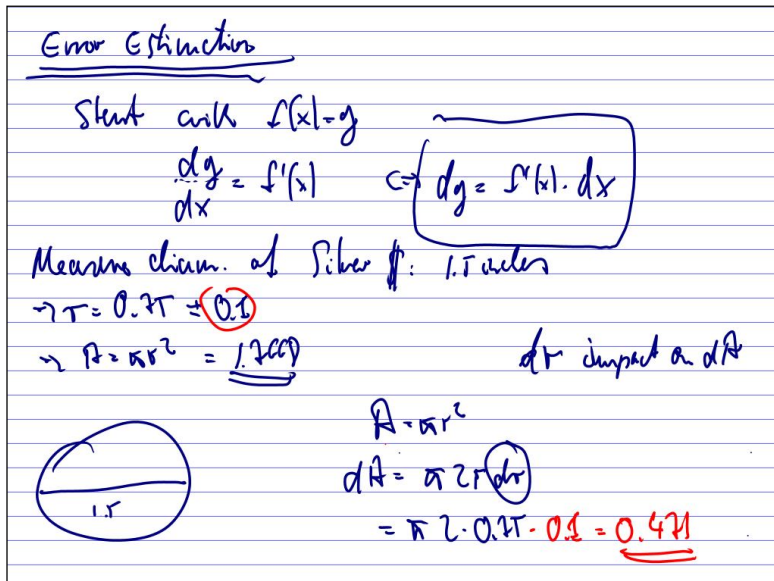 Error Estimation
Start with f(x)=y
dy/dx = f'(x) <=> dy = f'(x) · dx
Measure diam. of Silver $: 1.5 inches
→ r = 0.75 ± 0.1
→ A = πr² = 1.7
dr impact on dA
A = πr²
dA = π2r dr
1.5
= π 2 · 0.75 · 0.1 = 0.471